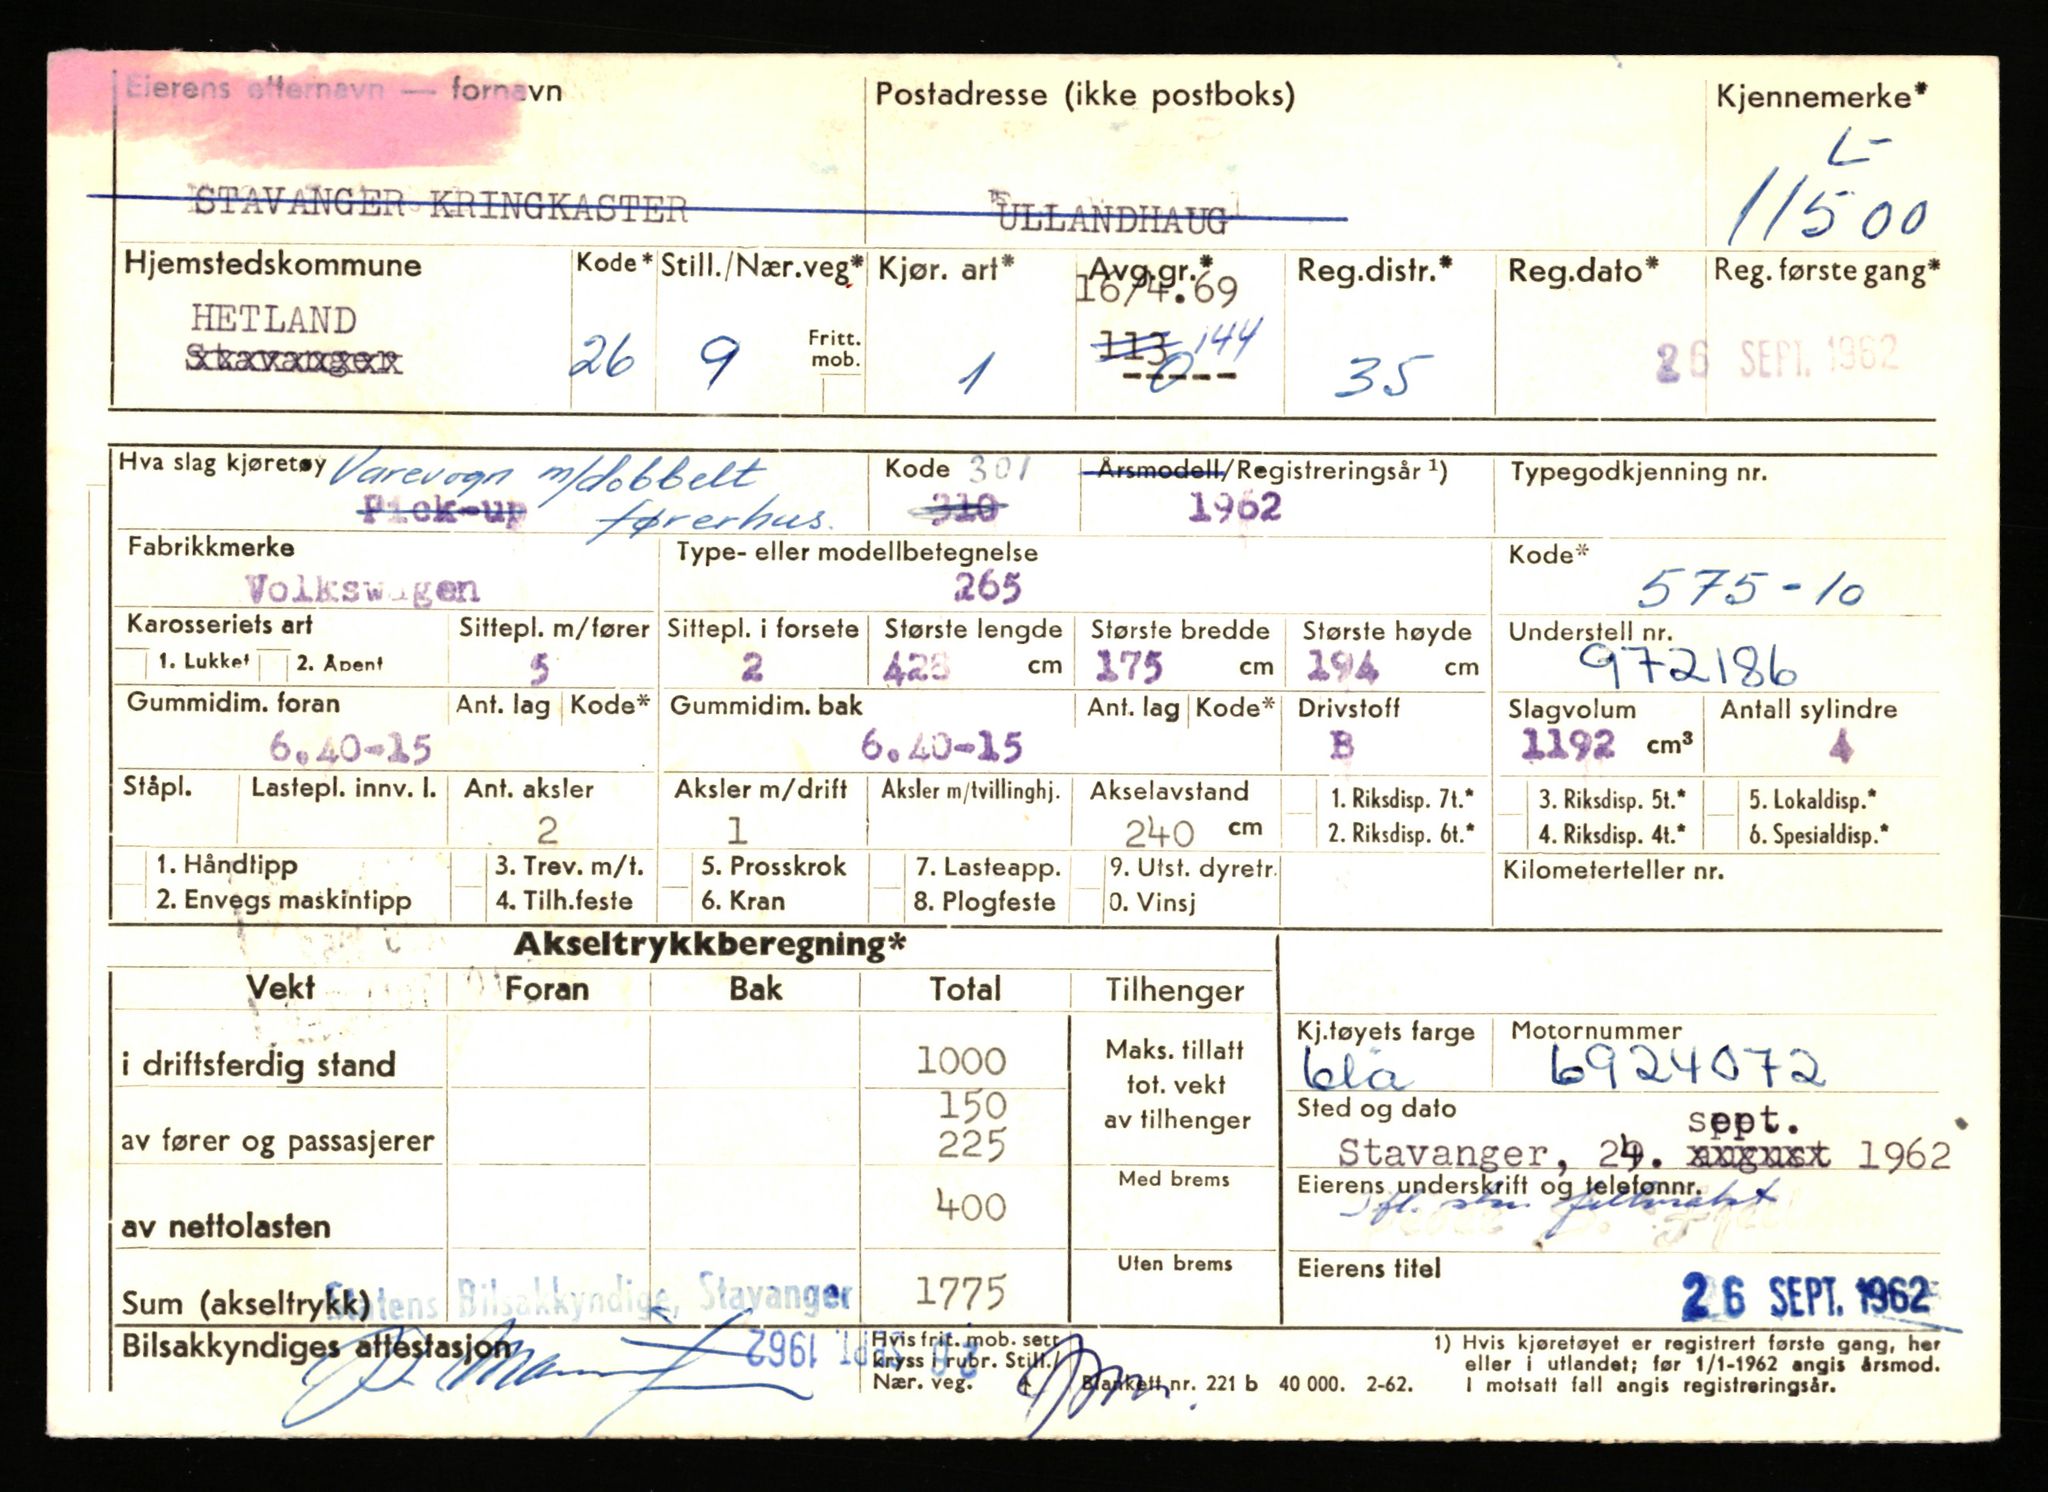 Eierens etternavn — fornavn Postadresse (ikke postboks) Kjennemerke*
L-
11500
STAVANGER KRINGKASTER ULLANDHAUG
Hjemstedskommune Kode* Still./Nær.veg* Kjør. art* Avg.gr.* Reg.distr.* Reg.dato* Reg. første gang*
16/4.69
HETLAND
Stavanger 26 9 Fritt. mob. 1 113 144 0 35 26 SEPT. 1962
Hva slag kjøretøy Varevogn m/dobbelt Kode 301 Årsmodell/Registreringsår ¹) Typegodkjenning nr.
Pick-up førerhus. 310 1962
Fabrikkmerke Type- eller modellbetegnelse Kode*
Volkswagen 265 575-10
Karosseriets art Sittepl. m/fører Sittepl. i forsete Største lengde Største bredde Største høyde Understell nr.
1. Lukket 2. Åpent 5 2 428 cm 175 cm 194 cm 972186
Gummidim. foran Ant. lag Kode* Gummidim. bak Ant. lag Kode* Drivstoff Slagvolum Antall sylindre
6.40-15 6.40-15 B 1192 cm³ 4
Ståpl. Lastepl. innv. l. Ant. aksler Aksler m/drift Aksler m/tvillinghj. Akselavstand 1. Riksdisp. 7t.* 3. Riksdisp. 5t.* 5. Lokaldisp.*
2 1 240 cm 2. Riksdisp. 6t.* 4. Riksdisp. 4t.* 6. Spesialdisp.*
1. Håndtipp 3. Trev. m/t. 5. Prosskrok 7. Lasteapp. 9. Utst. dyretr. Kilometerteller nr.
2. Envegs maskintipp 4. Tilh.feste 6. Kran 8. Plogfeste 0. Vinsj
Akseltrykkberegning*
Vekt Foran Bak Total Tilhenger
Kj.tøyets farge Motornummer
i driftsferdig stand 1000 Maks. tillatt tot. vekt av tilhenger blå 6924072
150 Sted og dato
av fører og passasjerer 225 sept.
Stavanger, 24. august 1962
Med brems Eierens underskrift og telefonnr.
av nettolasten 400
Uten brems Eierens titel
Sum (akseltrykk) Statens Bilsakkyndige, Stavanger 1775 26 SEPT. 1962
Bilsakkyndiges attestasjon SEPT. 1962 Hvis frit. mob. sett
kryss i rubr. Still./
Nær. veg. Blankett nr. 221 b 40 000. 2-62.
1) Hvis kjøretøyet er registrert første gang, her
eller i utlandet; før 1/1-1962 angis årsmod.
I motsatt fall angis registreringsår.